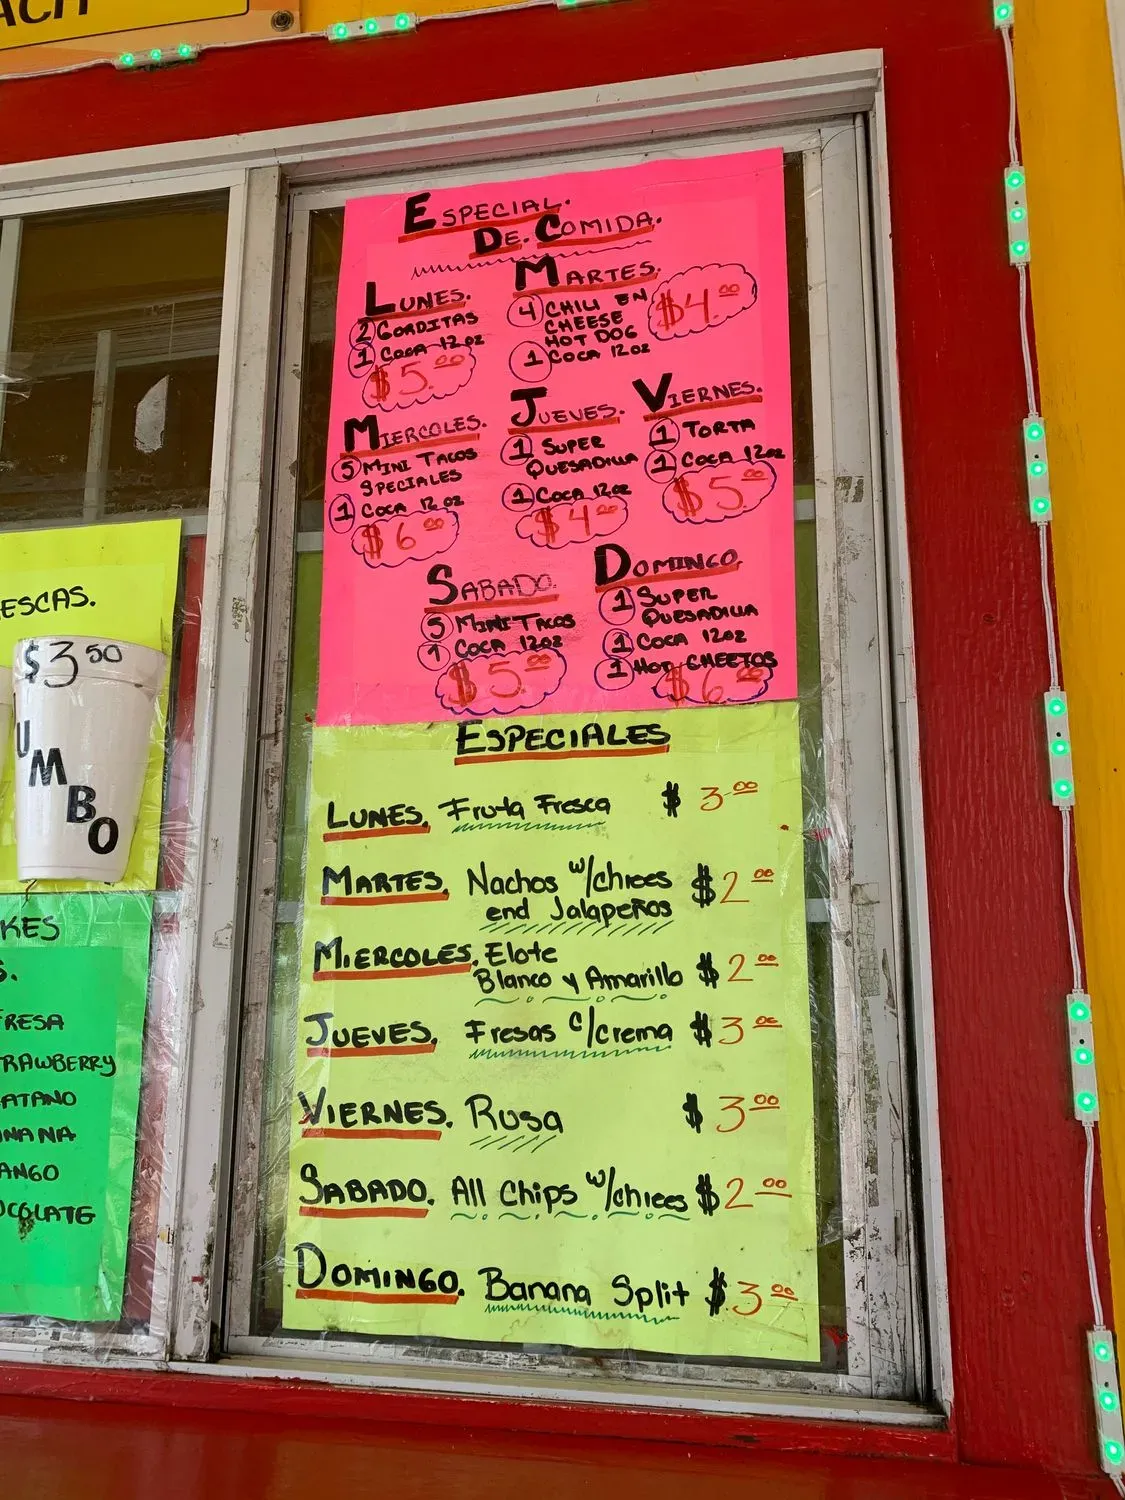 ACH
ESPECIAL.
DE. COMIDA.
LUNES.
2 GORDITAS
1 COCA 12 oz
$5.00
MARTES.
4 CHILI EN
CHEESE
HOT DOG
1 COCA 12oz
$4.00
MIERCOLES.
5 MINI TACOS
SPECIALES
1 COCA 12 oz
$6.00
JUEVES.
1 SUPER
QUESADILLA
1 COCA 12oz
$4.00
VIERNES.
1 TORTA
1 COCA 12oz
$5.00
SABADO.
5 MINI TACOS
1 COCA 12oz
$5.00
DOMINGO.
1 SUPER
QUESADILLA
1 COCA 12oz
1 HOT CHEETOS
$6.00
ESPECIALES
LUNES. Fruta Fresca $3.00
MARTES. Nachos w/chees
end Jalapeños $2.00
MIERCOLES. Elote
Blanco y Amarillo $2.00
JUEVES. Fresas c/crema $3.00
VIERNES. Rusa $3.00
SABADO. All Chips w/chees $2.00
DOMINGO. Banana Split $3.00
ESCAS.
$3.50
UMBO
KES
S.
FRESA
TRAWBERRY
ATANO
NANA
ANGO
OCOLATE